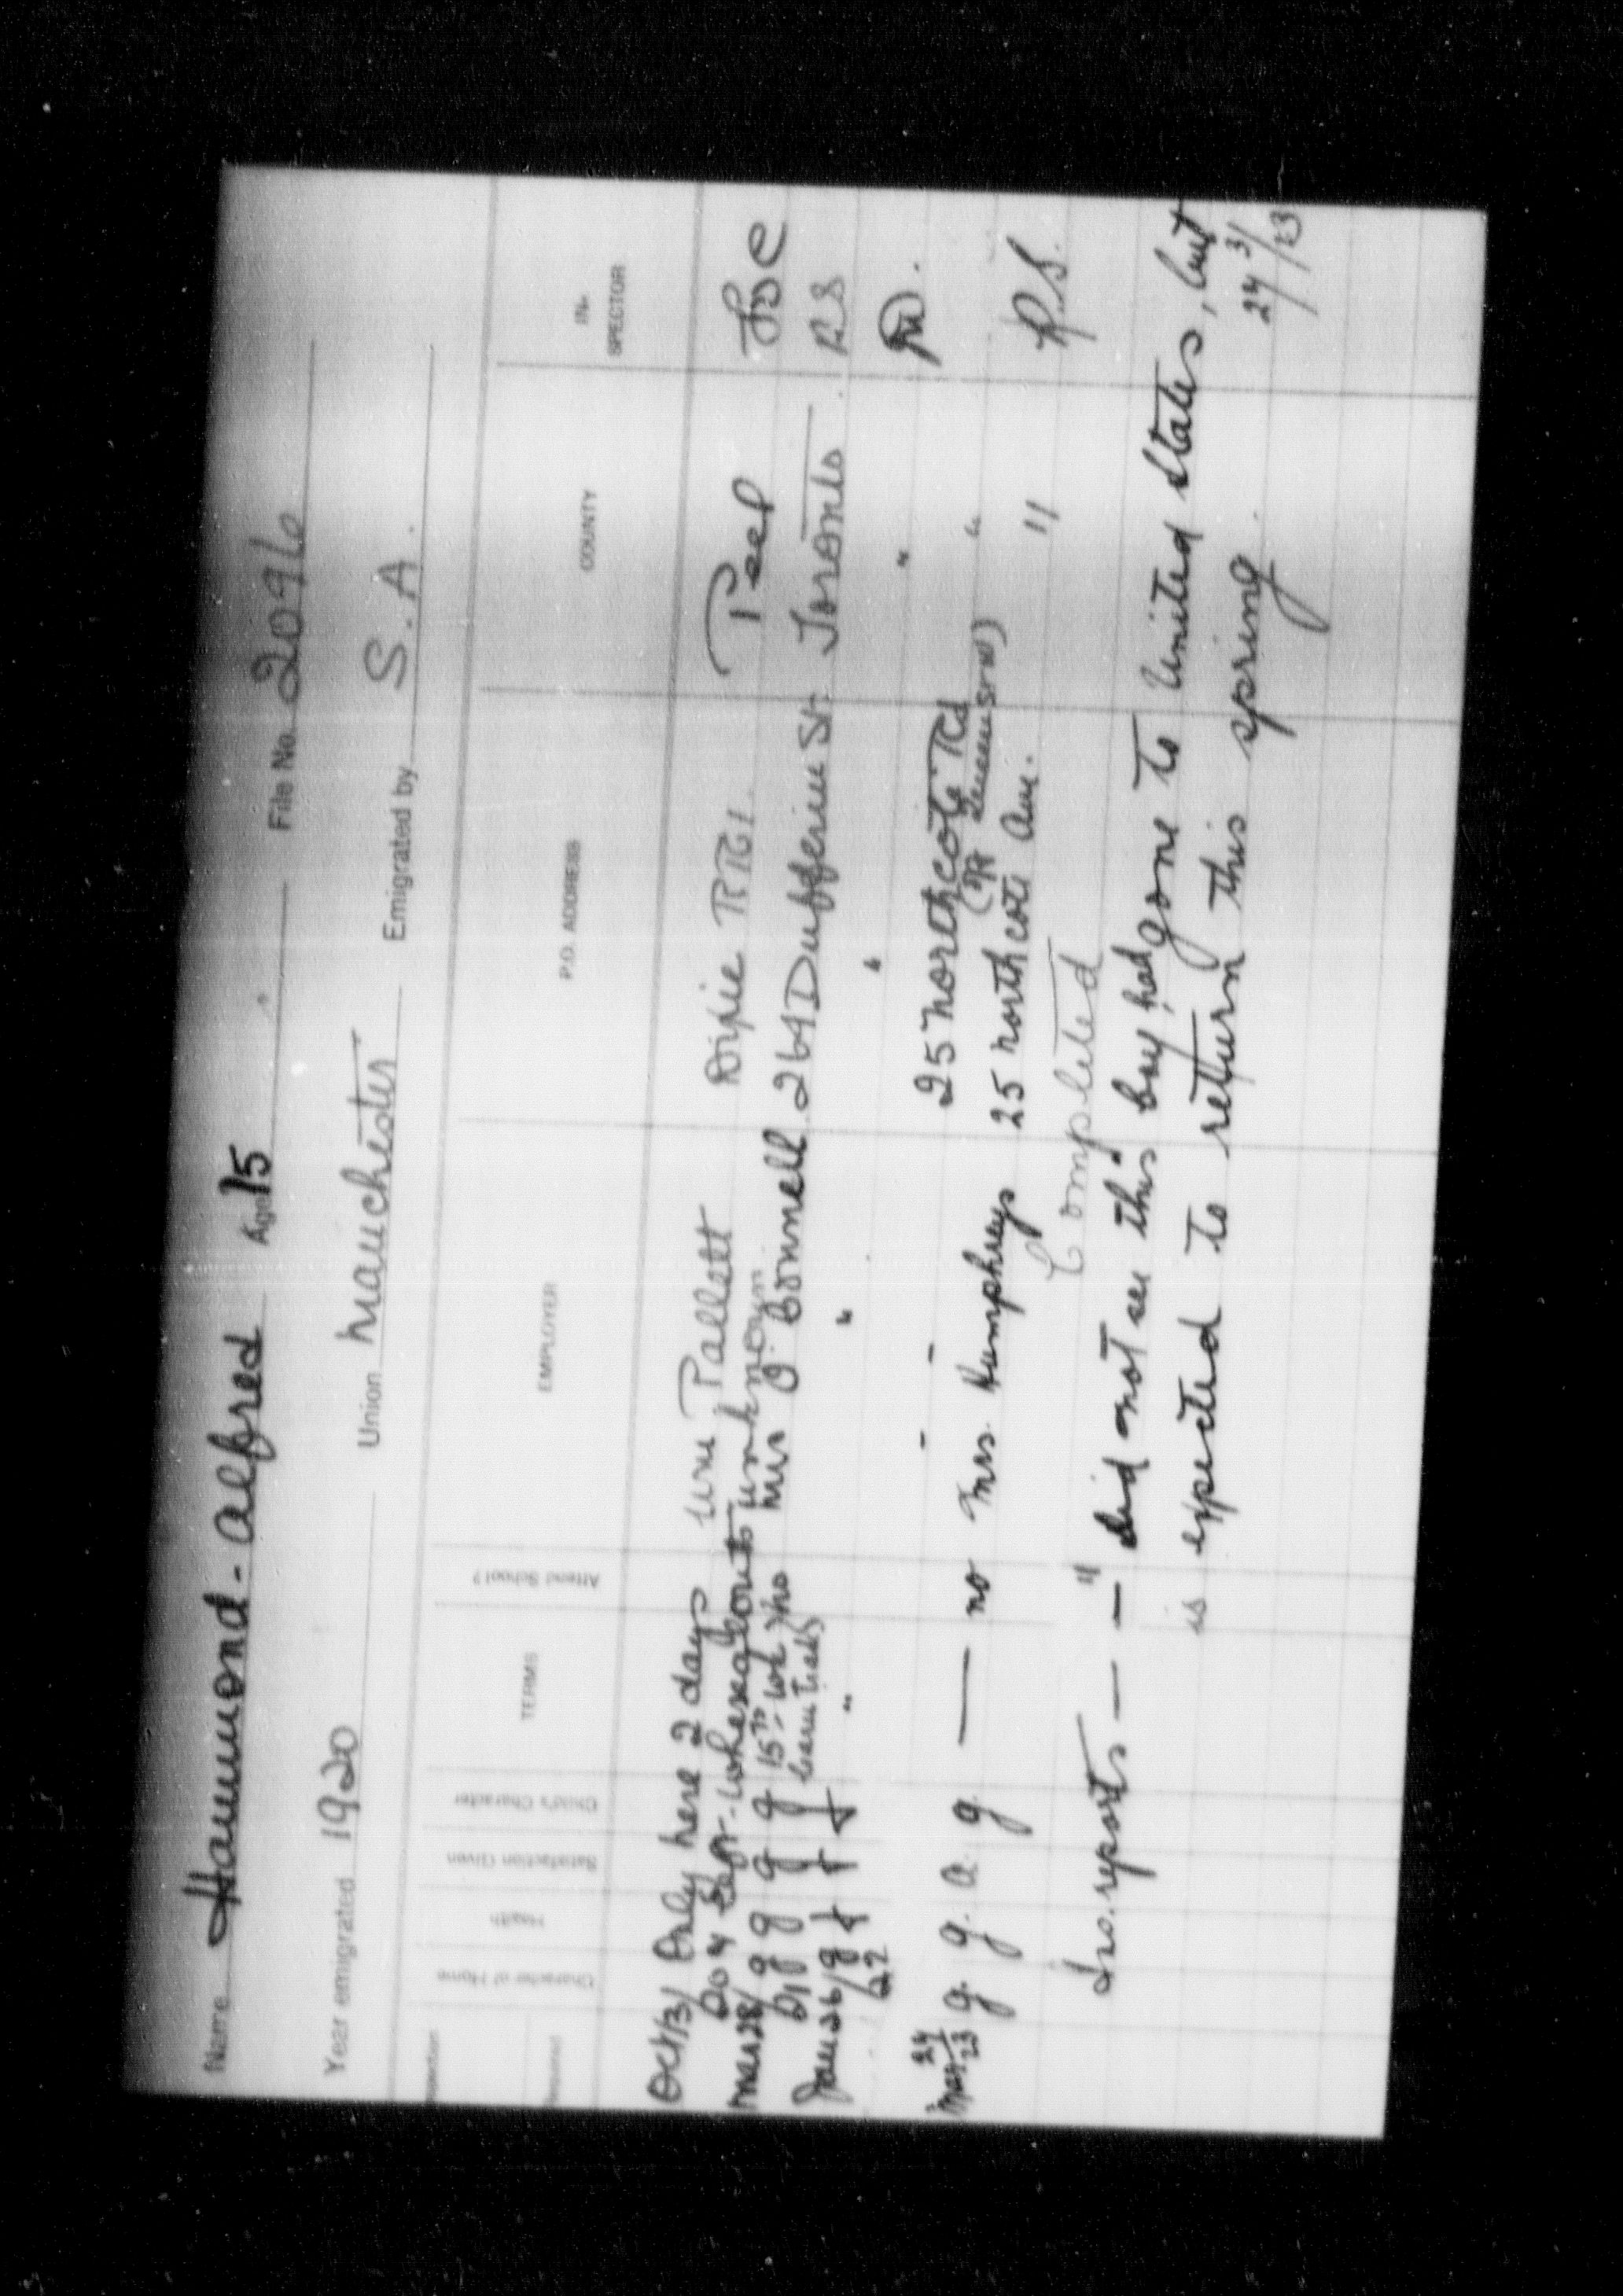 Name Hammond - Alfred Age 15 File No. 2096
Year emigrated 1920 Union Manchester Emigrated by S.A.
Character of Home Health Satisfaction Given Child's Character TERMS Attend School? EMPLOYER P.O. ADDRESS COUNTY IN-SPECTOR
Oct/31 Only here 2 days Wm Pallett Dixie RR1. Peel
whereabouts unknown
Mar 28/21 g g g g 15 no Mrs J. Bonnell 264 Dufferin St Toronto RS
learn trade
Jan 26/22 g f f f " " " "
25 Northcote Rd
Mar 24/23 g. g. a. g — no Mrs. Humphreys 25 Northcote Ave. " R.S.
Completed
Ins. reports — — " did not see this boy, had gone to United States, but
is expected to return this spring. 24/3/23